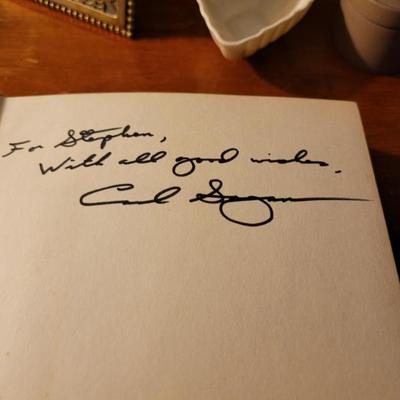 For Stephen,
With all good wishes,
Carl Sagan